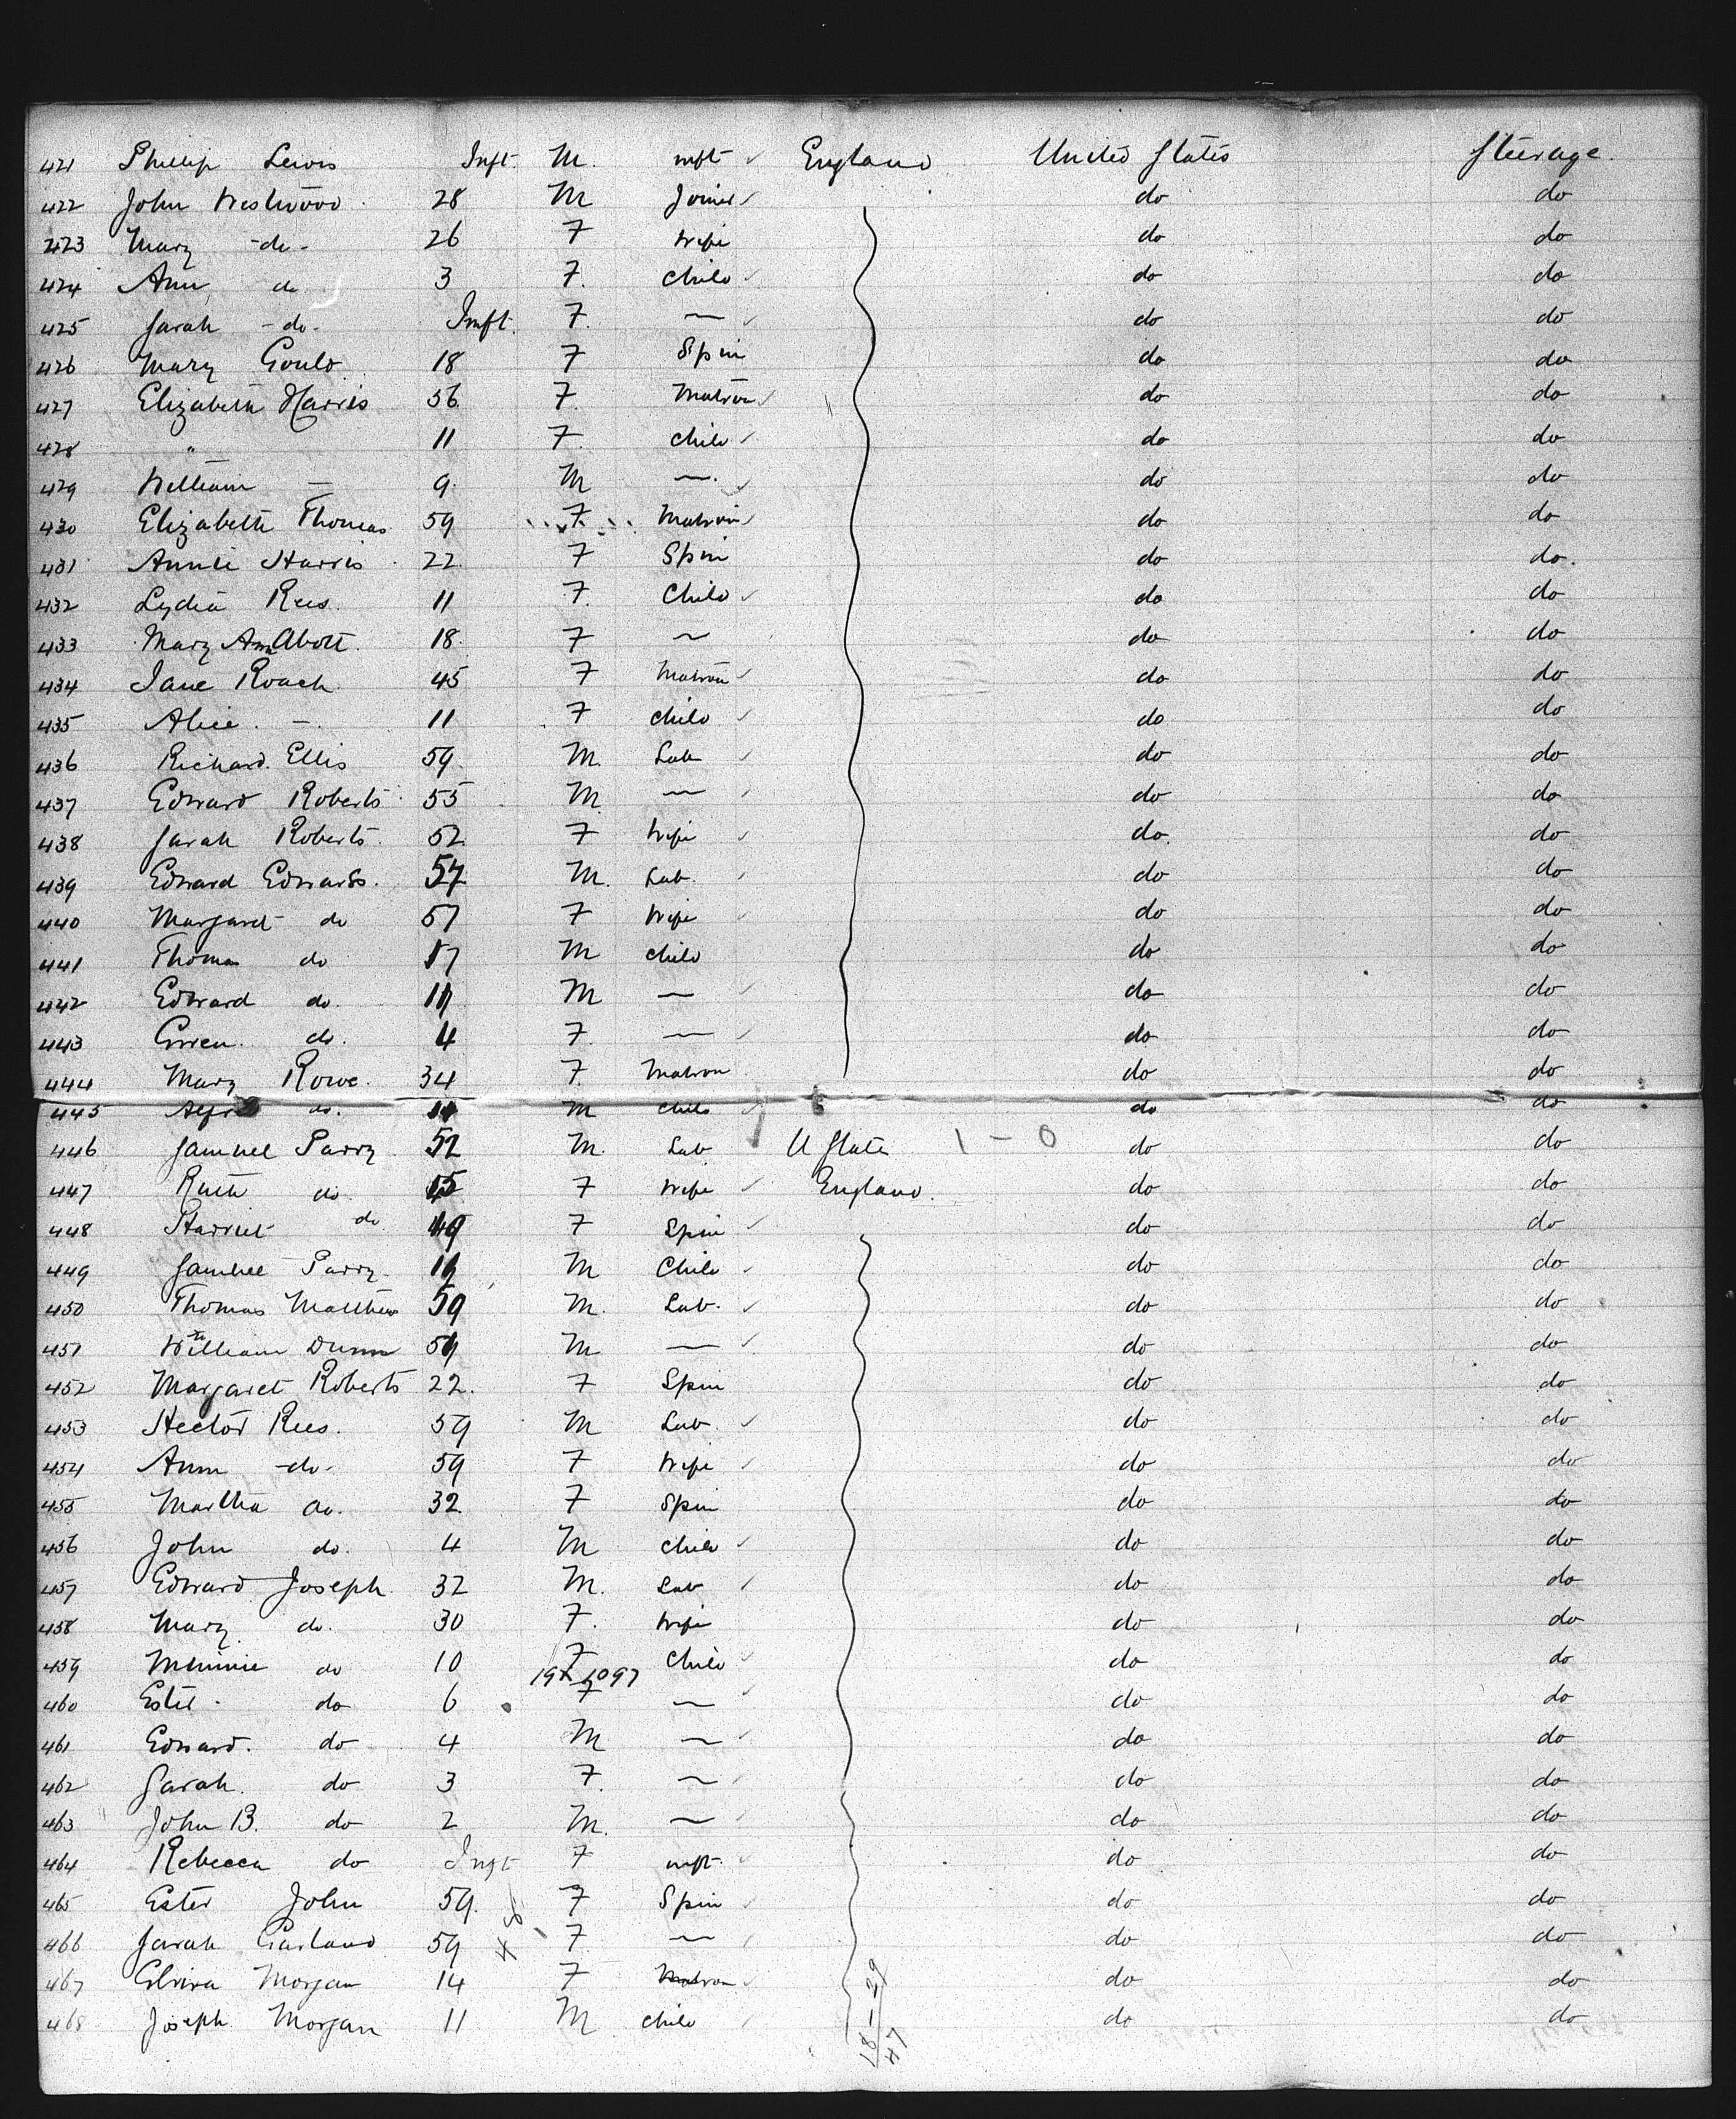 421 Phillip Lewis Inft. M. inft England United States Steerage.
422 John Westwood 28 M Joiner do do
423 Mary -do- 26 F Wife do do
424 Ann do 3 F. Child do do
425 Sarah -do- Inft. F. — do do
426 Mary Gould 18 F Spin do do
427 Elizabeth Harris 56 F. Matron do do
428 " 11 F. Child do do
429 William — 9. M —. do do
430 Elizabeth Thomas 59 F Matron do do
431 Annie Harris 22 F Spin do do.
432 Lydia Rees. 11 F. Child do do
433 Mary Ann Abott. 18. F — do do
434 Jane Roach 45 F Matron do do
435 Alice. — 11 F Child do do
436 Richard. Ellis 59. M. Lab do do
437 Edward Roberts 55 M — do do
438 Sarah Roberts. 52. F Wife do. do
439 Edward Edwards. 57 M. Lab. do do
440 Margaret do 57 F Wife do do
441 Thomas do 17 M Child do do
442 Edward do. M — do do
443 Gwen. do. 4 F. — do do
444 Mary Rowe. 34 F. Matron do do
445 do. M Child do do
446 Samuel Parry 52 M. Lab U State 1 - 0 do do
447 Ruth do F Wife England. do do
448 Harriet do F Spin do do
449 Samuel Parry. M Child do do
450 Thomas Matthew 59 M. Lab. do do
451 William Dunn M — do do
452 Margaret Roberts 22. F Spin do do
453 Hector Rees. 59 M Lab. do do
454 Ann -do- 59 F Wife do do
455 Martha do. 32 F Spin do do
456 John do. 4 M Child do do
457 Edward Joseph 32 M. Lab do do
458 Mary do. 30 F. Wife do do
459 Minnie do 10 F Child do do
460 Ester do 6 F — do do
461 Edward. do 4 M — do do
462 Sarah. do 3 F. — do do
463 John B. do 2 M. — do do
464 Rebecca do Inft F inft. do do
465 Ester John 59. F Spin do do
466 Sarah Garland 59 F — do do
467 Elvira Morgan 14 F Matron do do
468 Joseph Morgan 11 M Child do do
18-29
47